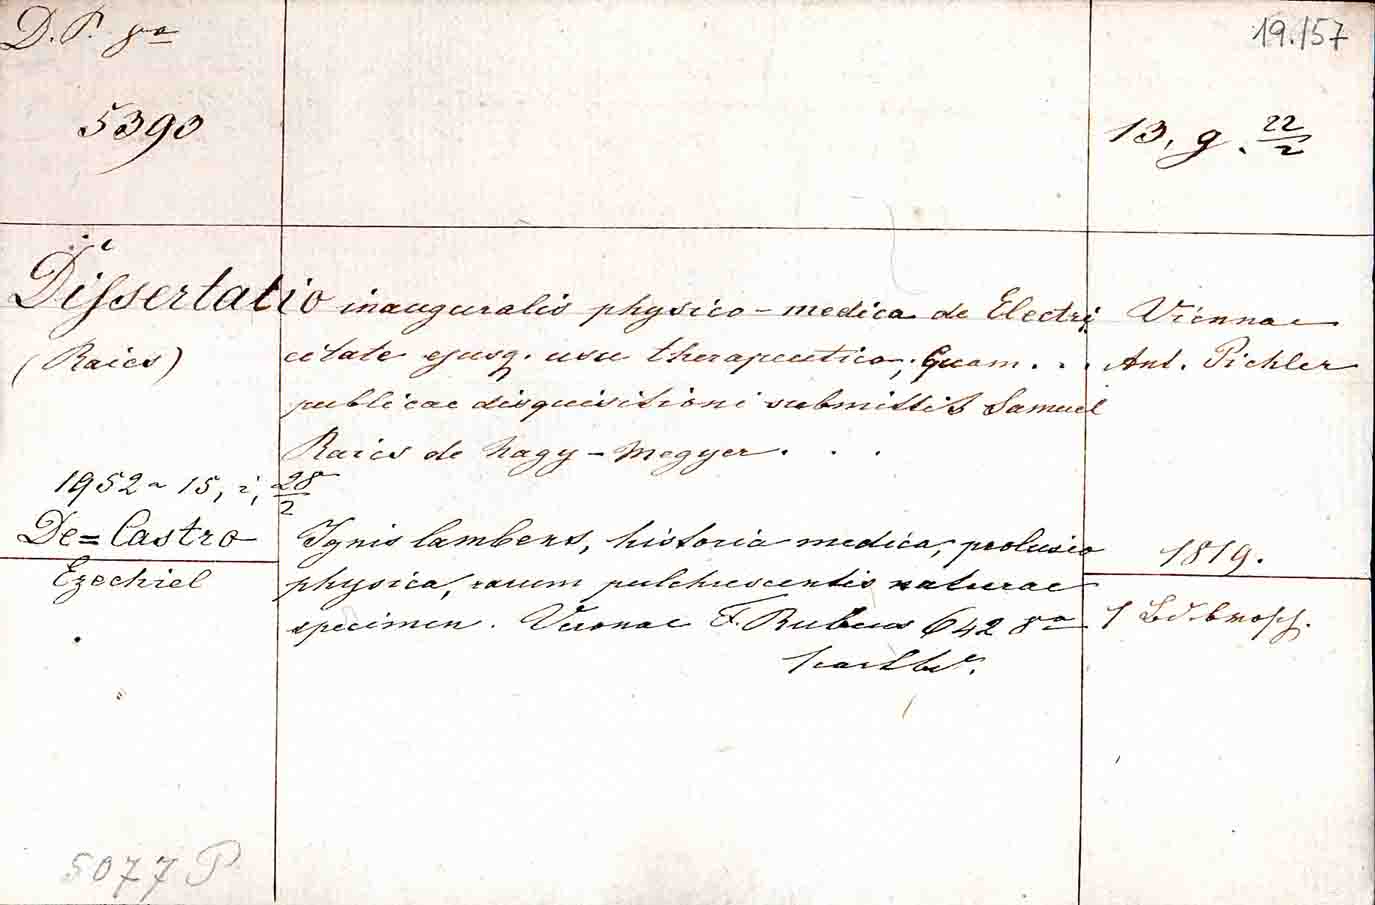 D. P. 8va
19.157
5390
13, g. 22/2
Dissertatio inauguralis physico-medica de Electri
citate ejusq. usu therapeutico, quam . . .
(Raics)
publicae disquisitioni submittit Samuel
Raics de Nagy-Megyer . . .
Viennae
Ant. Pichler
1819.
1 Ldbrosch.
1952 ~ 15, i, 28/2
De=Castro
Ezechiel
Ignis lambens, historia medica, prolusio
physica, rarum pulchrescentis naturae
specimen. Veronae F. Rubeus 642 8vo
5077 P